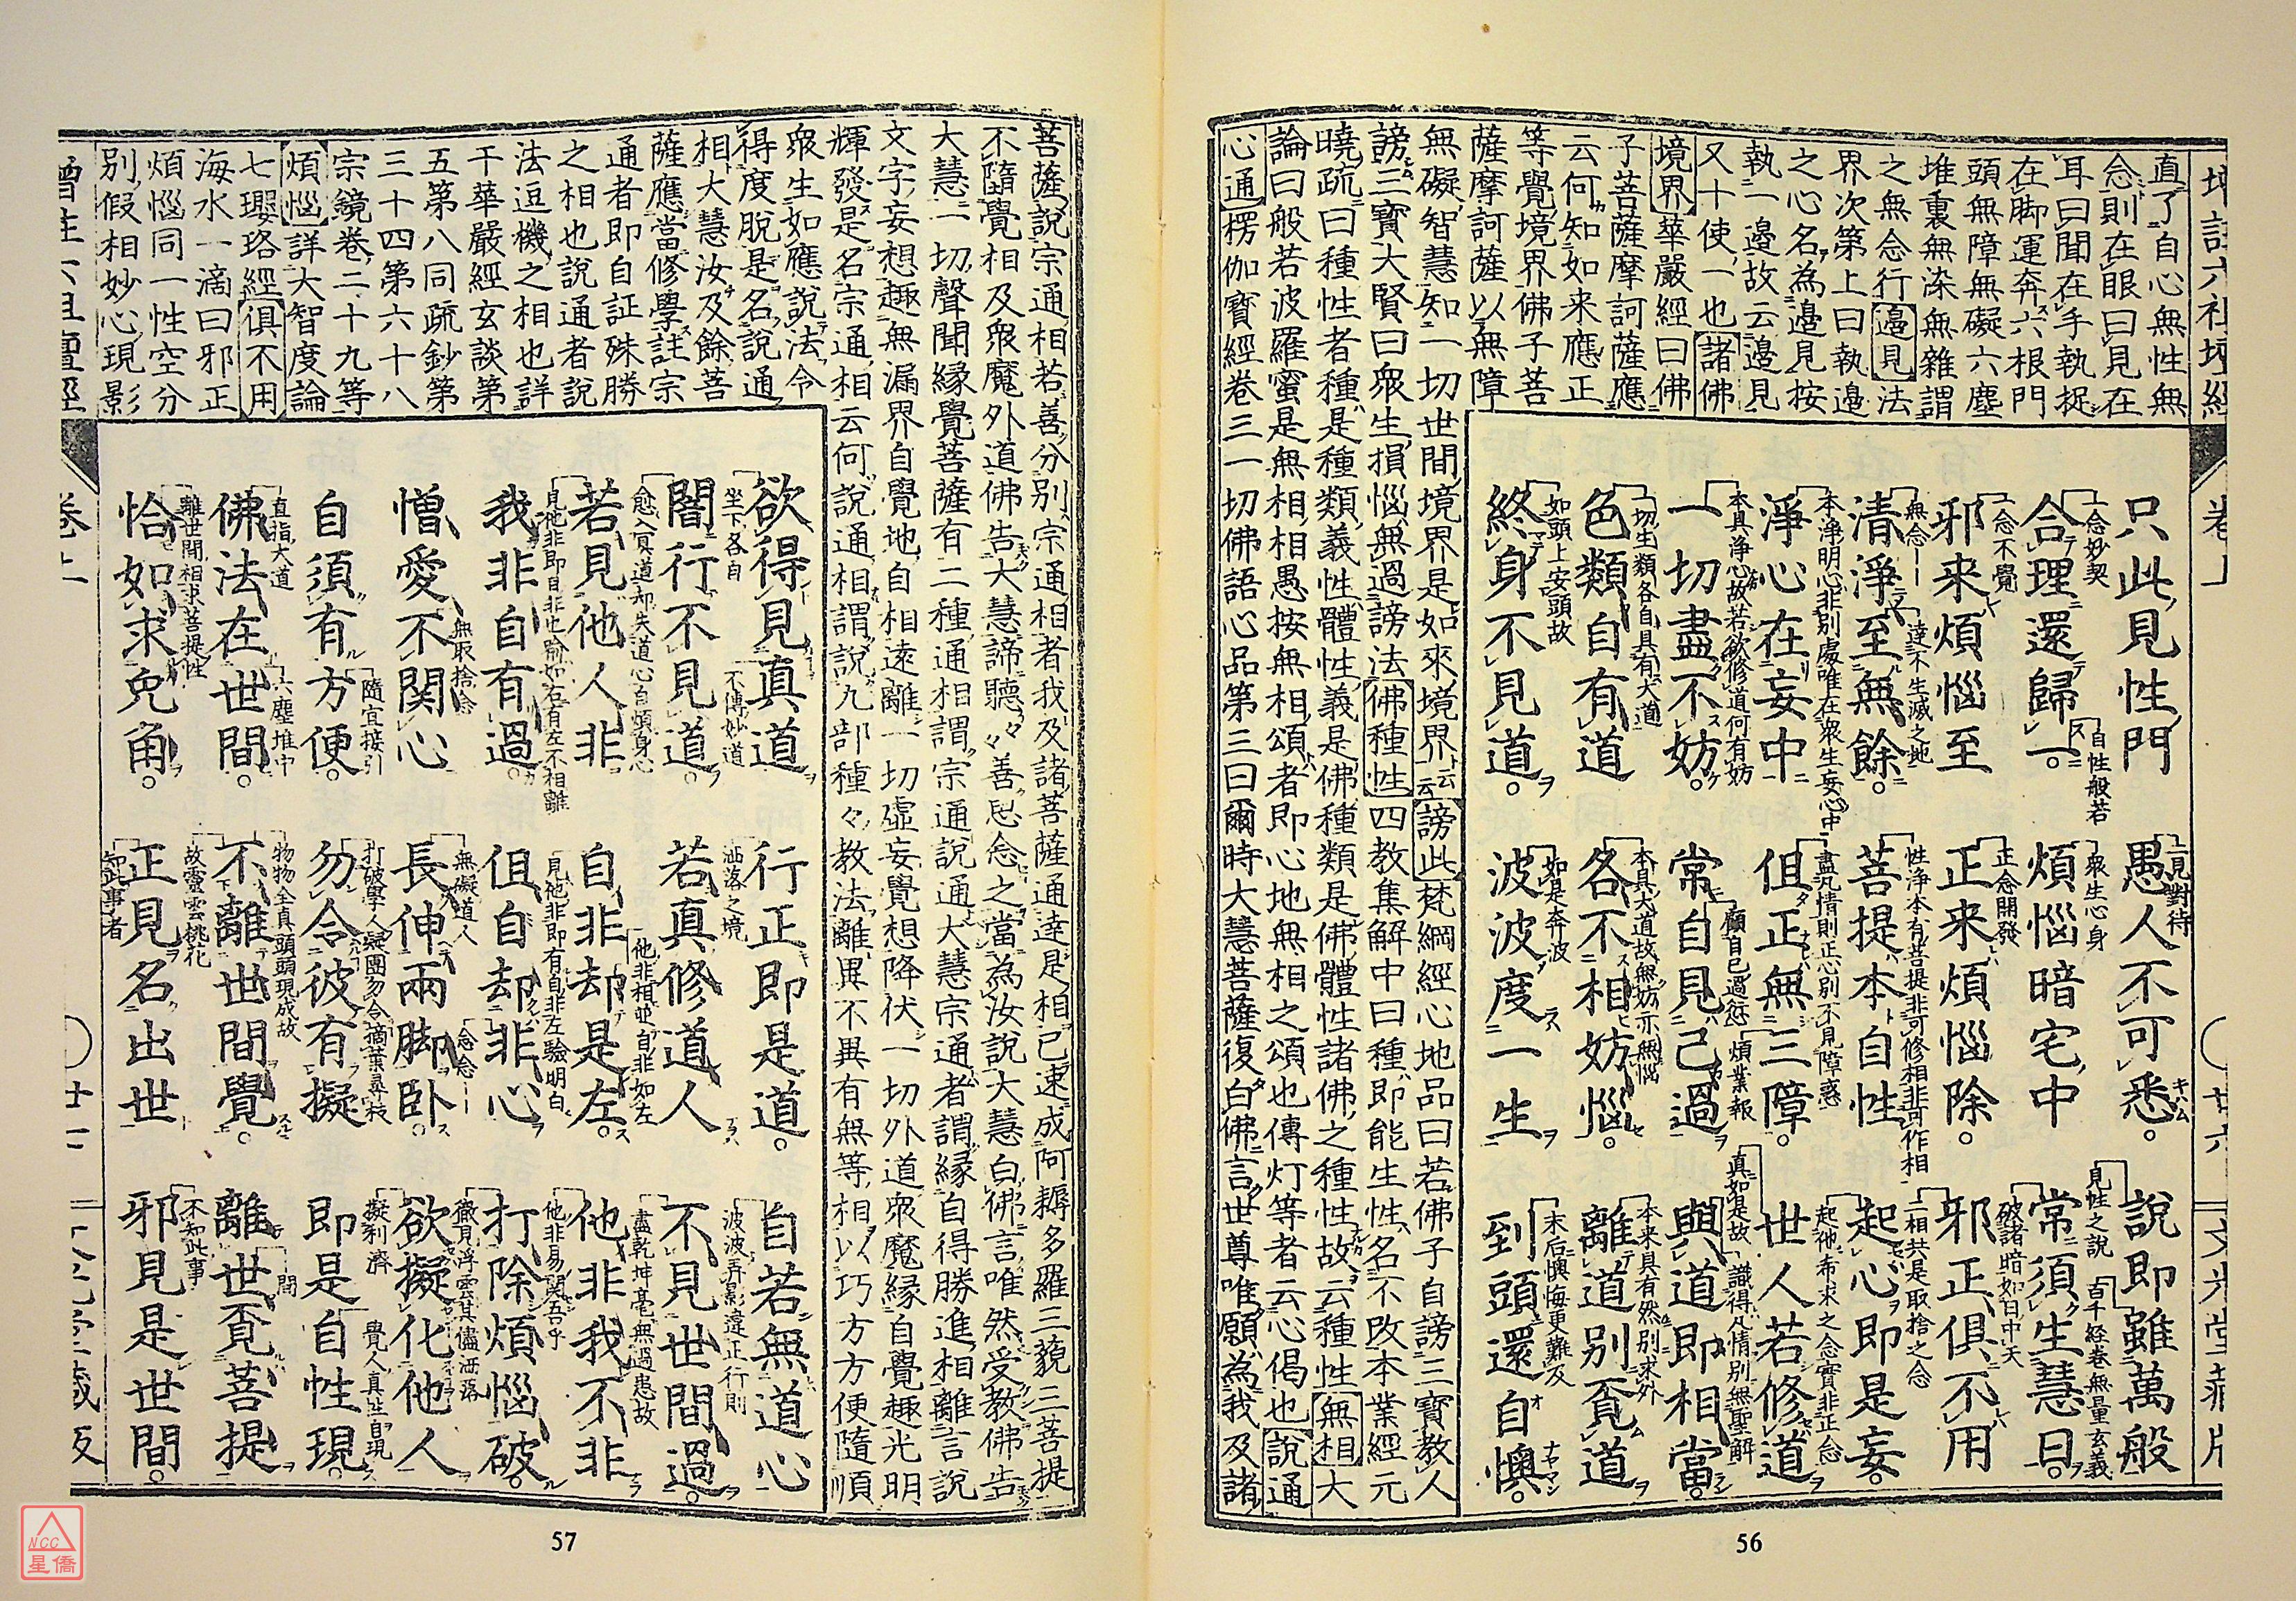 直了自心無性無
念則在眼曰見在
耳曰聞在手執捉
在脚運奔六根門
頭無障無礙六塵
堆裏無染無雜謂
之無念行邊見法
界次第上曰執邊
之心名為邊見按
執一邊故云邊見
又十使一也諸佛
境界華嚴經曰佛
子菩薩摩訶薩應
云何知如来應正
等覺境界佛子菩
薩摩訶薩以無障
無礙智慧知一切世間境界是如來境界云云謗此梵網經心地品曰若佛子自謗三寶教人
謗三寶大賢曰衆生損惱無過謗法佛種性四教集解中曰種即能生性名不改本業經元
曉疏曰種性者種是種類義性體性義是佛種類是佛體性諸佛之種性故云種性無相大
論曰般若波羅蜜是無相相愚按無相頌者即心地無相之頌也傳灯等者云心偈也說通
心通楞伽寶經卷三一切佛語心品第三曰爾時大慧菩薩復白佛言世尊唯願為我及諸
只此見性門 愚人不可悉 說即雖萬般
合理還歸一 煩惱暗宅中 常須生慧日
邪来煩惱至 正来煩惱除 邪正俱不用
清淨至無餘 菩提本自性 起心即是妄
淨心在妄中 但正無三障 世人若修道
一切盡不妨 常自見己過 與道即相當
色類自有道 各不相妨惱 離道別覔道
終身不見道 波波度一生 到頭還自懊
二見對待
見性之說 百千経巻無量玄義
一念妙契
自性般若
衆生心身
破諸暗如日中天
一念不覺
正念開發
二相共是取捨之念
無念
達不生滅之地
性淨本有菩提非可修相非可作相
起他希求之念實非正念
本淨明心非別處唯在衆生妄心中
盡凡情則正心別不見障惑
本具淨心故若欲修道何有妨
顧自己過愆
煩業報
真如是故
識得凡情別無聖解
一切生類各自具有大道
本具大道故無妨亦無惱
本来具有然別求外
如頭上安頭故
如是奔波
末后懊悔更難及
卷上
廿六
56
菩薩說宗通相若善分別宗通相者我及諸菩薩通達是相已速成阿耨多羅三藐三菩提
不隨覺相及衆魔外道佛告大慧諦聽々々善思念之當為汝說大慧白佛言唯然受教佛告
大慧一切聲聞緣覺菩薩有二種通相謂宗通說通大慧宗通者謂緣自得勝進相離言說
文字妄想趣無漏界自覺地自相遠離一切虛妄覺想降伏一切外道衆魔緣自覺趣光明
輝發是名宗通相云何說通相謂說九部種々教法離異不異有無等相以巧方方便隨順
衆生如應說法令
得度脫是名說通
相大慧汝及餘菩
薩應當修學註宗
通者即自証殊勝
之相也說通者說
法逗機之相也詳
于華嚴經玄談第
五第八同疏鈔第
三十四第六十八
宗鏡卷二十九等
煩惱詳大智度論
七瓔珞經俱不用
海水一滴曰邪正
煩惱同一性空分
別假相妙心現影
欲得見真道 行正即是道 自若無道心
闇行不見道 若真修道人 不見世間過
若見他人非 自非却是左 他非我不非
我非自有過 但自却非心 打除煩惱破
憎愛不関心 長伸兩脚卧 欲擬化他人
自須有方便 勿令彼有擬 即是自性現
佛法在世間 不離世間覺 離世覔菩提
恰如求兔角 正見名出世 邪見是世間
坐下各自
不傳妙道
洒落之境
波波弄影違正行則
愈入冥道却失道心自煩身心
盡乾坤毫無過患故
見他非即自非也喻如右有左不相離
見他非即有自非左驗明白
他非相並自非如左
他非易関吾乎
無取捨念
無礙道人
念念
徹見浮雲其儘洒落
隨宜接引
打破學人疑團勿令摘葉尋枝
擬利濟
覺人真性自現
直指大道
六塵堆中
物物全真頭頭現成故
間
離世間相求菩提性
故靈雲桃化
不知此事
知此事者
卷上
57
NCC
星僑